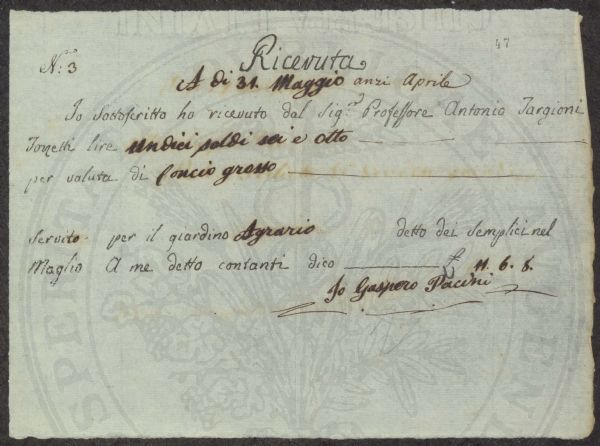 47
N.º 3
Ricevuta
A dì 31. Maggio anzi Aprile
Io Sottoscritto ho ricevuto dal Sig.e Professore Antonio Targioni
Tozzetti lire undici soldi sei e otto
per valuta di Concio grosso
servito per il giardino Agrario detto dei Semplici nel
Maglio A me detto contanti dico £ 11. 6. 8.
Io Gaspero Pacini